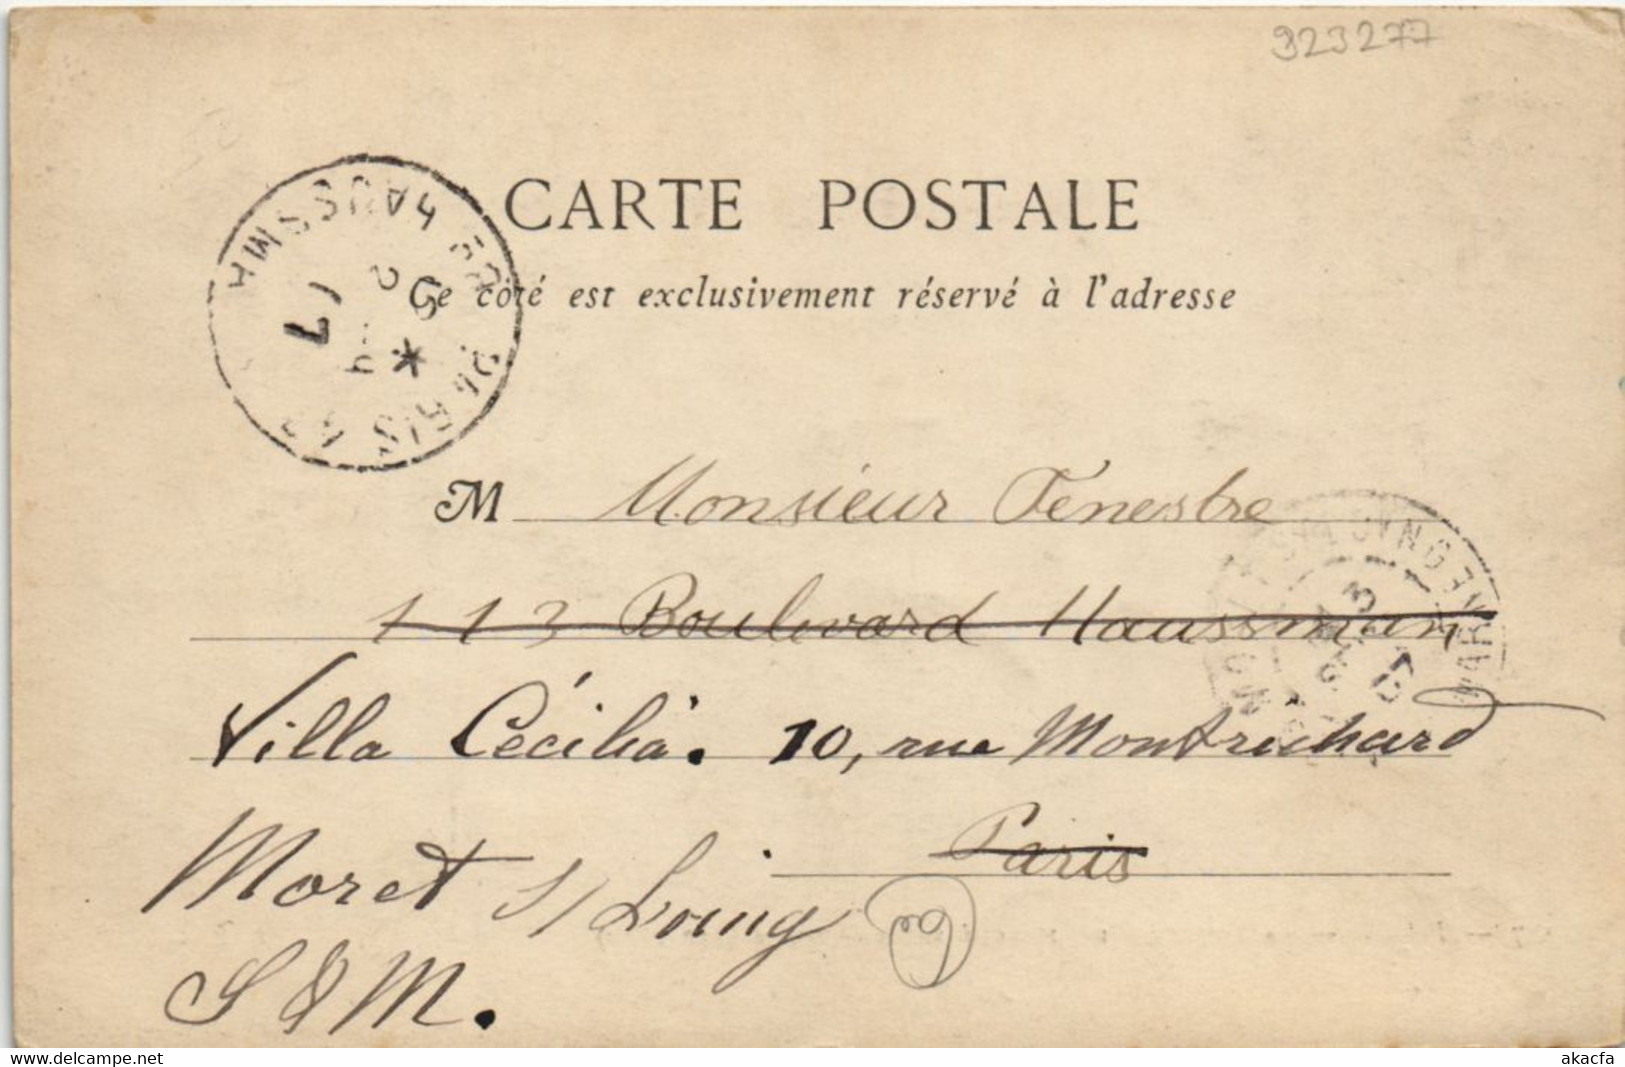 923277
CARTE POSTALE
Ce côté est exclusivement réservé à l'adresse
PARIS
M Monsieur Fenestre
113 Boulevard Haussmann
Villa Cécilia. 10, rue Montrichard
Paris
Moret s/ Loing
S & M.
www.delcampe.net
akacfa